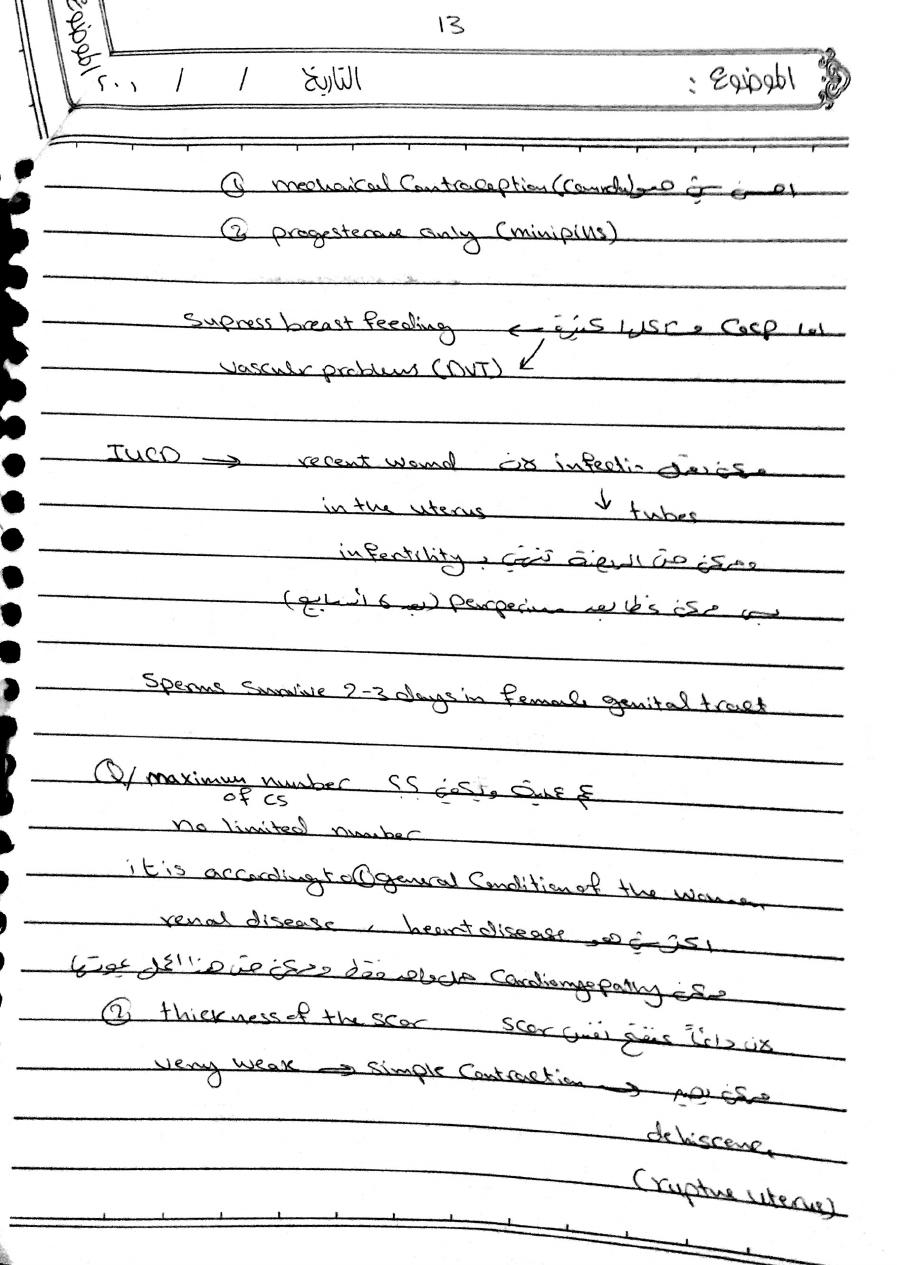 13
الموضوع :
التاريخ / / ٢٠٠١
الموضوع
① mechaical Contraception (Condu) هو شي احسن
② progesterone only (minipills)
اما COCP و مشاكلها كثيرة ← Supress breast feeding
vasculr problems (DVT)
IUCD → recent wound لان infectio- ممكن تعمل
in the uterus ↓ tubes
infertility و تنتهي من الممكن
(بعد 6 اسابيع) perperium بعد
Sperms Survive 2-3 days in female genital tract
Q/ maximum number of CS ؟؟ كم عملية
no limited number
it is according to ① general Condition of the women
renal disease , heart disease هو اكثر شي
ممكن Cardiomyopathy حمل واحد فقط وممكن من هذا الحمل
② thickness of the scar scar لان دائماً نفتح نفس
very weak → simple Contraction → ممكن يصير
dehiscence,
(ruptue uterus)